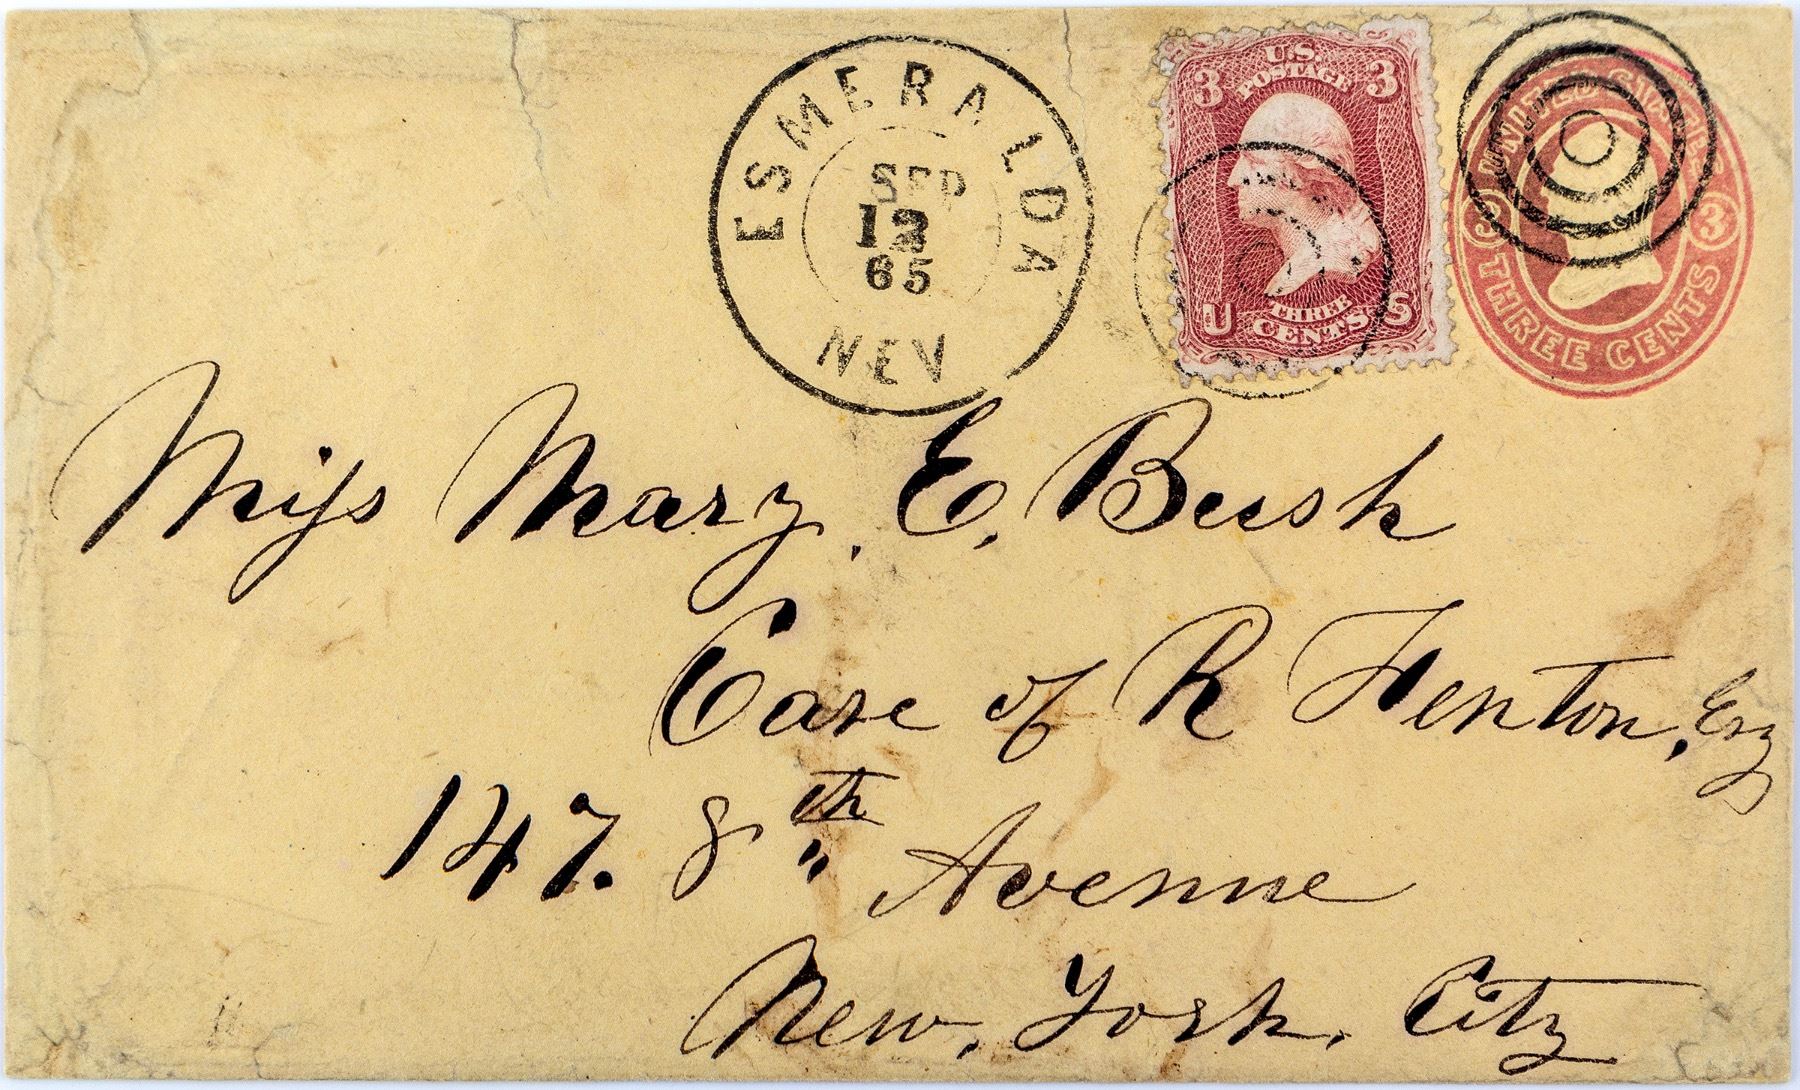 ESMERALDA
SEP
12
65
NEV
U.S.
POSTAGE
3 3
THREE
CENTS
U S
UNITED STATES
3 3
THREE CENTS
Miss Mary. E. Bush
Care of R Fenton, Esq
147. 8th Avenue
New, York, City